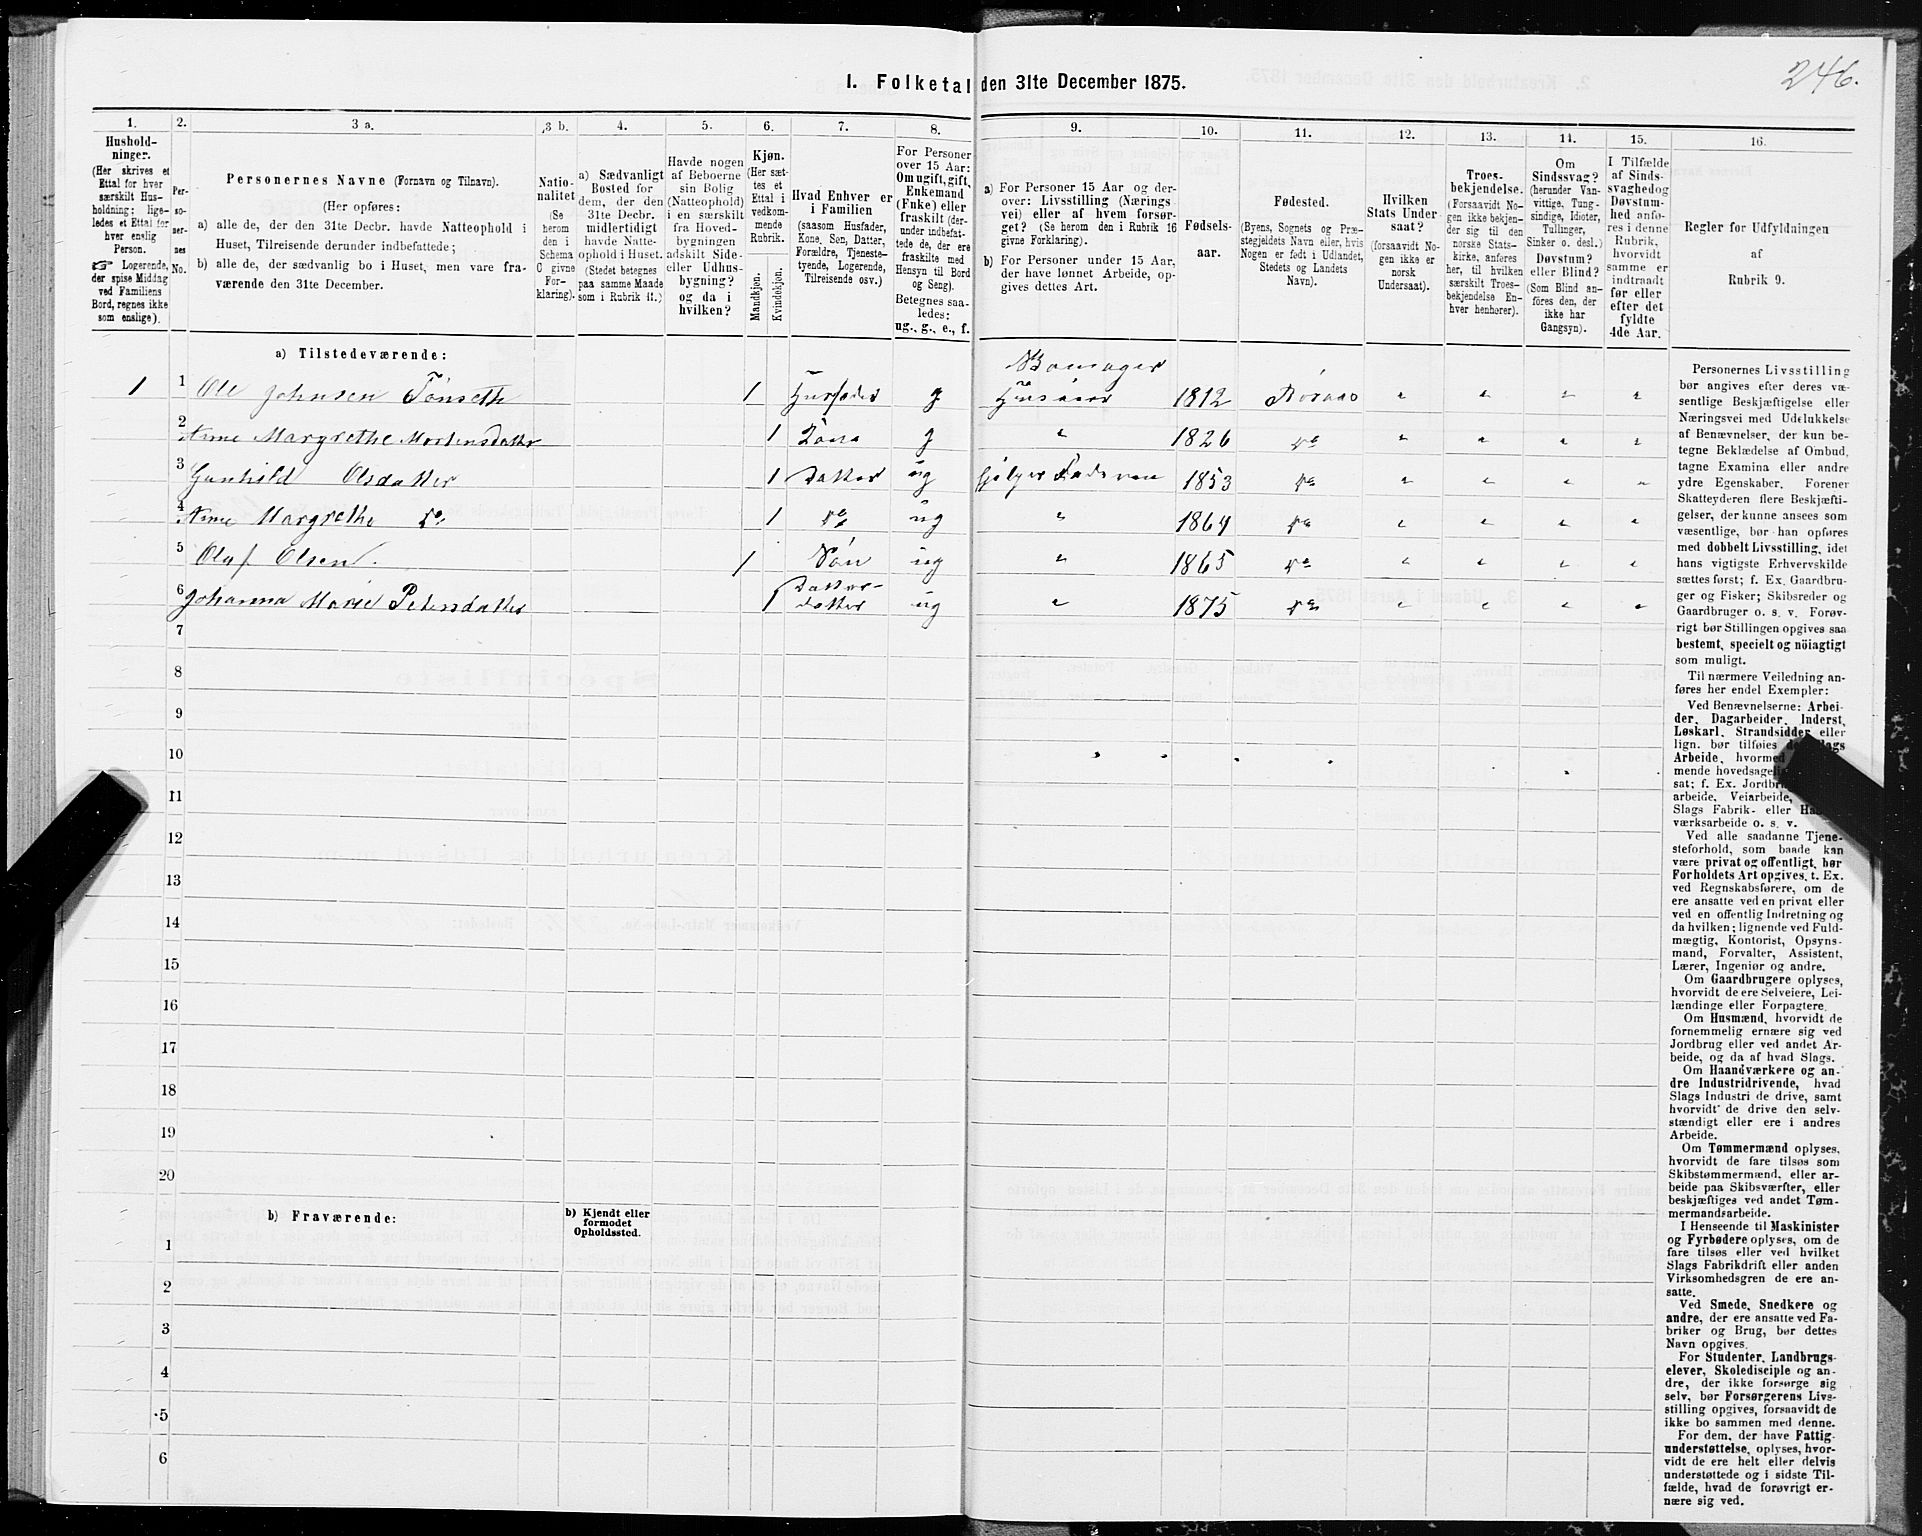 I. Folketal den 31te December 1875.
246.
1. 2. 3 a. 3 b. 4. 5. 6. 7. 8. 9. 10. 11. 12. 13. 14. 15. 16.
Hushold-
ninger.
(Her skrives et
Ettal for hver
særskilt Hus-
holdning; lige-
ledes et Ettal for
hver enslig
Person.
☞ Logerende,
der spise Middag
ved Familiens
Bord, regnes ikke
som enslige).
Per-
so-
ner-
nes
No.
Personernes Navne (Fornavn og Tilnavn).
(Her opføres:
a) alle de, der den 31te Decbr. havde Natteophold i
Huset, Tilreisende derunder indbefattede;
b) alle de, der sædvanlig bo i Huset, men vare fra-
værende den 31te December.
Natio-
nalitet
(Se
herom
den i
Schema
C givne
For-
klaring).
a) Sædvanligt
Bosted for
dem, der den
31te Decbr.
midlertidigt
havde Natte-
ophold i Huset.
(Stedet betegnes
paa samme Maade
som i Rubrik 11.)
Havde nogen
af Beboerne
sin Bolig
(Natteophold)
i en særskilt
fra Hoved-
bygningen
adskilt Side-
eller Udhus-
bygning?
og da i
hvilken?
Kjøn.
(Her sæt-
tes et
Ettal i
vedkom-
mende
Rubrik.
Mandkjøn.
Kvindekjøn.
Hvad Enhver er
i Familien
(saasom Husfader,
Kone, Søn, Datter,
Forældre, Tjeneste-
tyende, Logerende,
Tilreisende osv.)
For Personer
over 15 Aar:
Om ugift, gift,
Enkemand
(Enke) eller
fraskilt (der-
under indbefat-
tede de, der ere
fraskilte med
Hensyn til Bord
og Seng).
Betegnes saa-
ledes:
ug., g., e., f.
a) For Personer 15 Aar og der-
over: Livsstilling (Nærings-
vei) eller af hvem forsør-
get? (Se herom den i Rubrik 16
givne Forklaring).
b) For Personer under 15 Aar,
der have lønnet Arbeide, op-
gives dettes Art.
Fødsels-
aar.
Fødested.
(Byens, Sognets og Præ-
stegjeldets Navn eller, hvis
Nogen er født i Udlandet,
Stedets og Landets
Navn).
Hvilken
Stats Under-
saat?
(forsaavidt No-
gen ikke er
norsk
Undersaat).
Troes-
bekjendelse.
(Forsaavidt No-
gen ikke bekjen-
der sig til den
norske Stats-
kirke, anføres
her, til hvilken
særskilt Troes-
bekjendelse En-
hver henhører).
Om
Sindssvag?
(herunder Van-
vittige, Tung-
sindige, Idioter,
Tullinger,
Sinker o. desl.)
Døvstum?
eller Blind?
(Som Blind an-
føres den, der
ikke har
Gangsyn).
I Tilfælde
af Sinds-
svaghed og
Døvstum-
hed anfø-
res i denne
Rubrik,
hvorvidt
samme er
indtraadt
før eller
efter det
fyldte
4de Aar.
Regler for Udfyldningen
af
Rubrik 9.
a) Tilstedeværende:
1 1 Ole Johnsen Tönseth 1 Husfader g 1812 Röraas " " " "
2 Anne Margrethe Mortensdatter 1 Kone g " 1826 do " " " "
3 Gunhild Olsdatter 1 Datter ug hjelper Faderen 1853 do " " " "
4 Anne Margrethe do 1 do ug " 1864 do " " " "
5 Oluf Olsen. 1 Sön ug " 1865 do " " " "
6 Johanna Marie Petersdatter 1 Datter-
datter ug " 1875 do " " " "
7
8
9
10
11
12
13
14
15
16
17
18
19
20
b) Fraværende:
b) Kjendt eller
formodet
Opholdssted.
1
2
3
4
5
6
Personernes Livsstilling
bør angives efter deres væ-
sentlige Beskjæftigelse eller
Næringsvei med Udelukkelse
af Benævnelser, der kun be-
tegne Beklædelse af Ombud,
tagne Examina eller andre
ydre Egenskaber. Forener
Skatteyderen flere Beskjæfti-
gelser, der kunne ansees som
væsentlige, bør han opføres
med dobbelt Livsstilling, idet
hans vigtigste Erhvervskilde
sættes først; f. Ex. Gaardbru-
ger og Fisker; Skibsreder og
Gaardbruger o. s. v. Forøv-
rigt bør Stillingen opgives saa
bestemt, specielt og nöiagtigt
som muligt.
Til nærmere Veiledning an-
føres her endel Exempler:
Ved Benævnelserne: Arbei-
der, Dagarbeider, Inderst,
Løskarl, Strandsidder eller
lign. bør tilføies
Arbeide, hvormed
mende hovedsageli
sat; f. Ex. Jordbr
arbeide, Veiarbeide,
Slags Fabrik- eller
værksarbeide o. s. v.
Ved alle saadanne Tjene-
steforhold, som baade kan
være privat og offentligt, bør
Forholdets Art opgives, t. Ex.
ved Regnskabsførere, om de
ere ansatte ved en privat eller
ved en offentlig Indretning og
da hvilken; lignende ved Fuld-
mægtig, Kontorist, Opsyns-
mand, Forvalter, Assistent,
Lærer, Ingeniør og andre.
Om Gaardbrugere oplyses,
hvorvidt de ere Selveiere, Lei-
lændinge eller Forpagtere.
Om Husmænd, hvorvidt de
fornemmelig ernære sig ved
Jordbrug eller ved andet Ar-
beide, og da af hvad Slags.
Om Haandværkere og an-
dre Industridrivende, hvad
Slags Industri de drive, samt
hvorvidt de drive den selv-
stændigt eller ere i andres
Arbeide.
Om Tømmermænd oplyses,
hvorvidt de fare tilsøs som
Skibstømmermænd, eller ar-
beide paa Skibsværfter, eller
beskjæftiges ved andet Tøm-
mermandsarbeide.
I Henseende til Maskinister
og Fyrbødere oplyses, om de
fare tilsøs eller ved hvilket
Slags Fabrikdrift eller anden
Virksomhedsgren de ere an-
satte.
Ved Smede, Snedkere og
andre, der ere ansatte ved Fa-
briker og Brug, bør dettes
Navn opgives.
For Studenter, Landbrugs-
elever, Skoledisciple og an-
dre, der ikke forsørge sig
selv, bør Forsørgerens Livs-
stilling opgives, forsaavidt de
ikke bo sammen med denne.
For dem, der have Fattig-
understøttelse, oplyses, hvor-
vidt de ere helt eller delvis
understøttede og i sidste Til-
fælde, hvad de forøvrigt er-
nære sig ved.